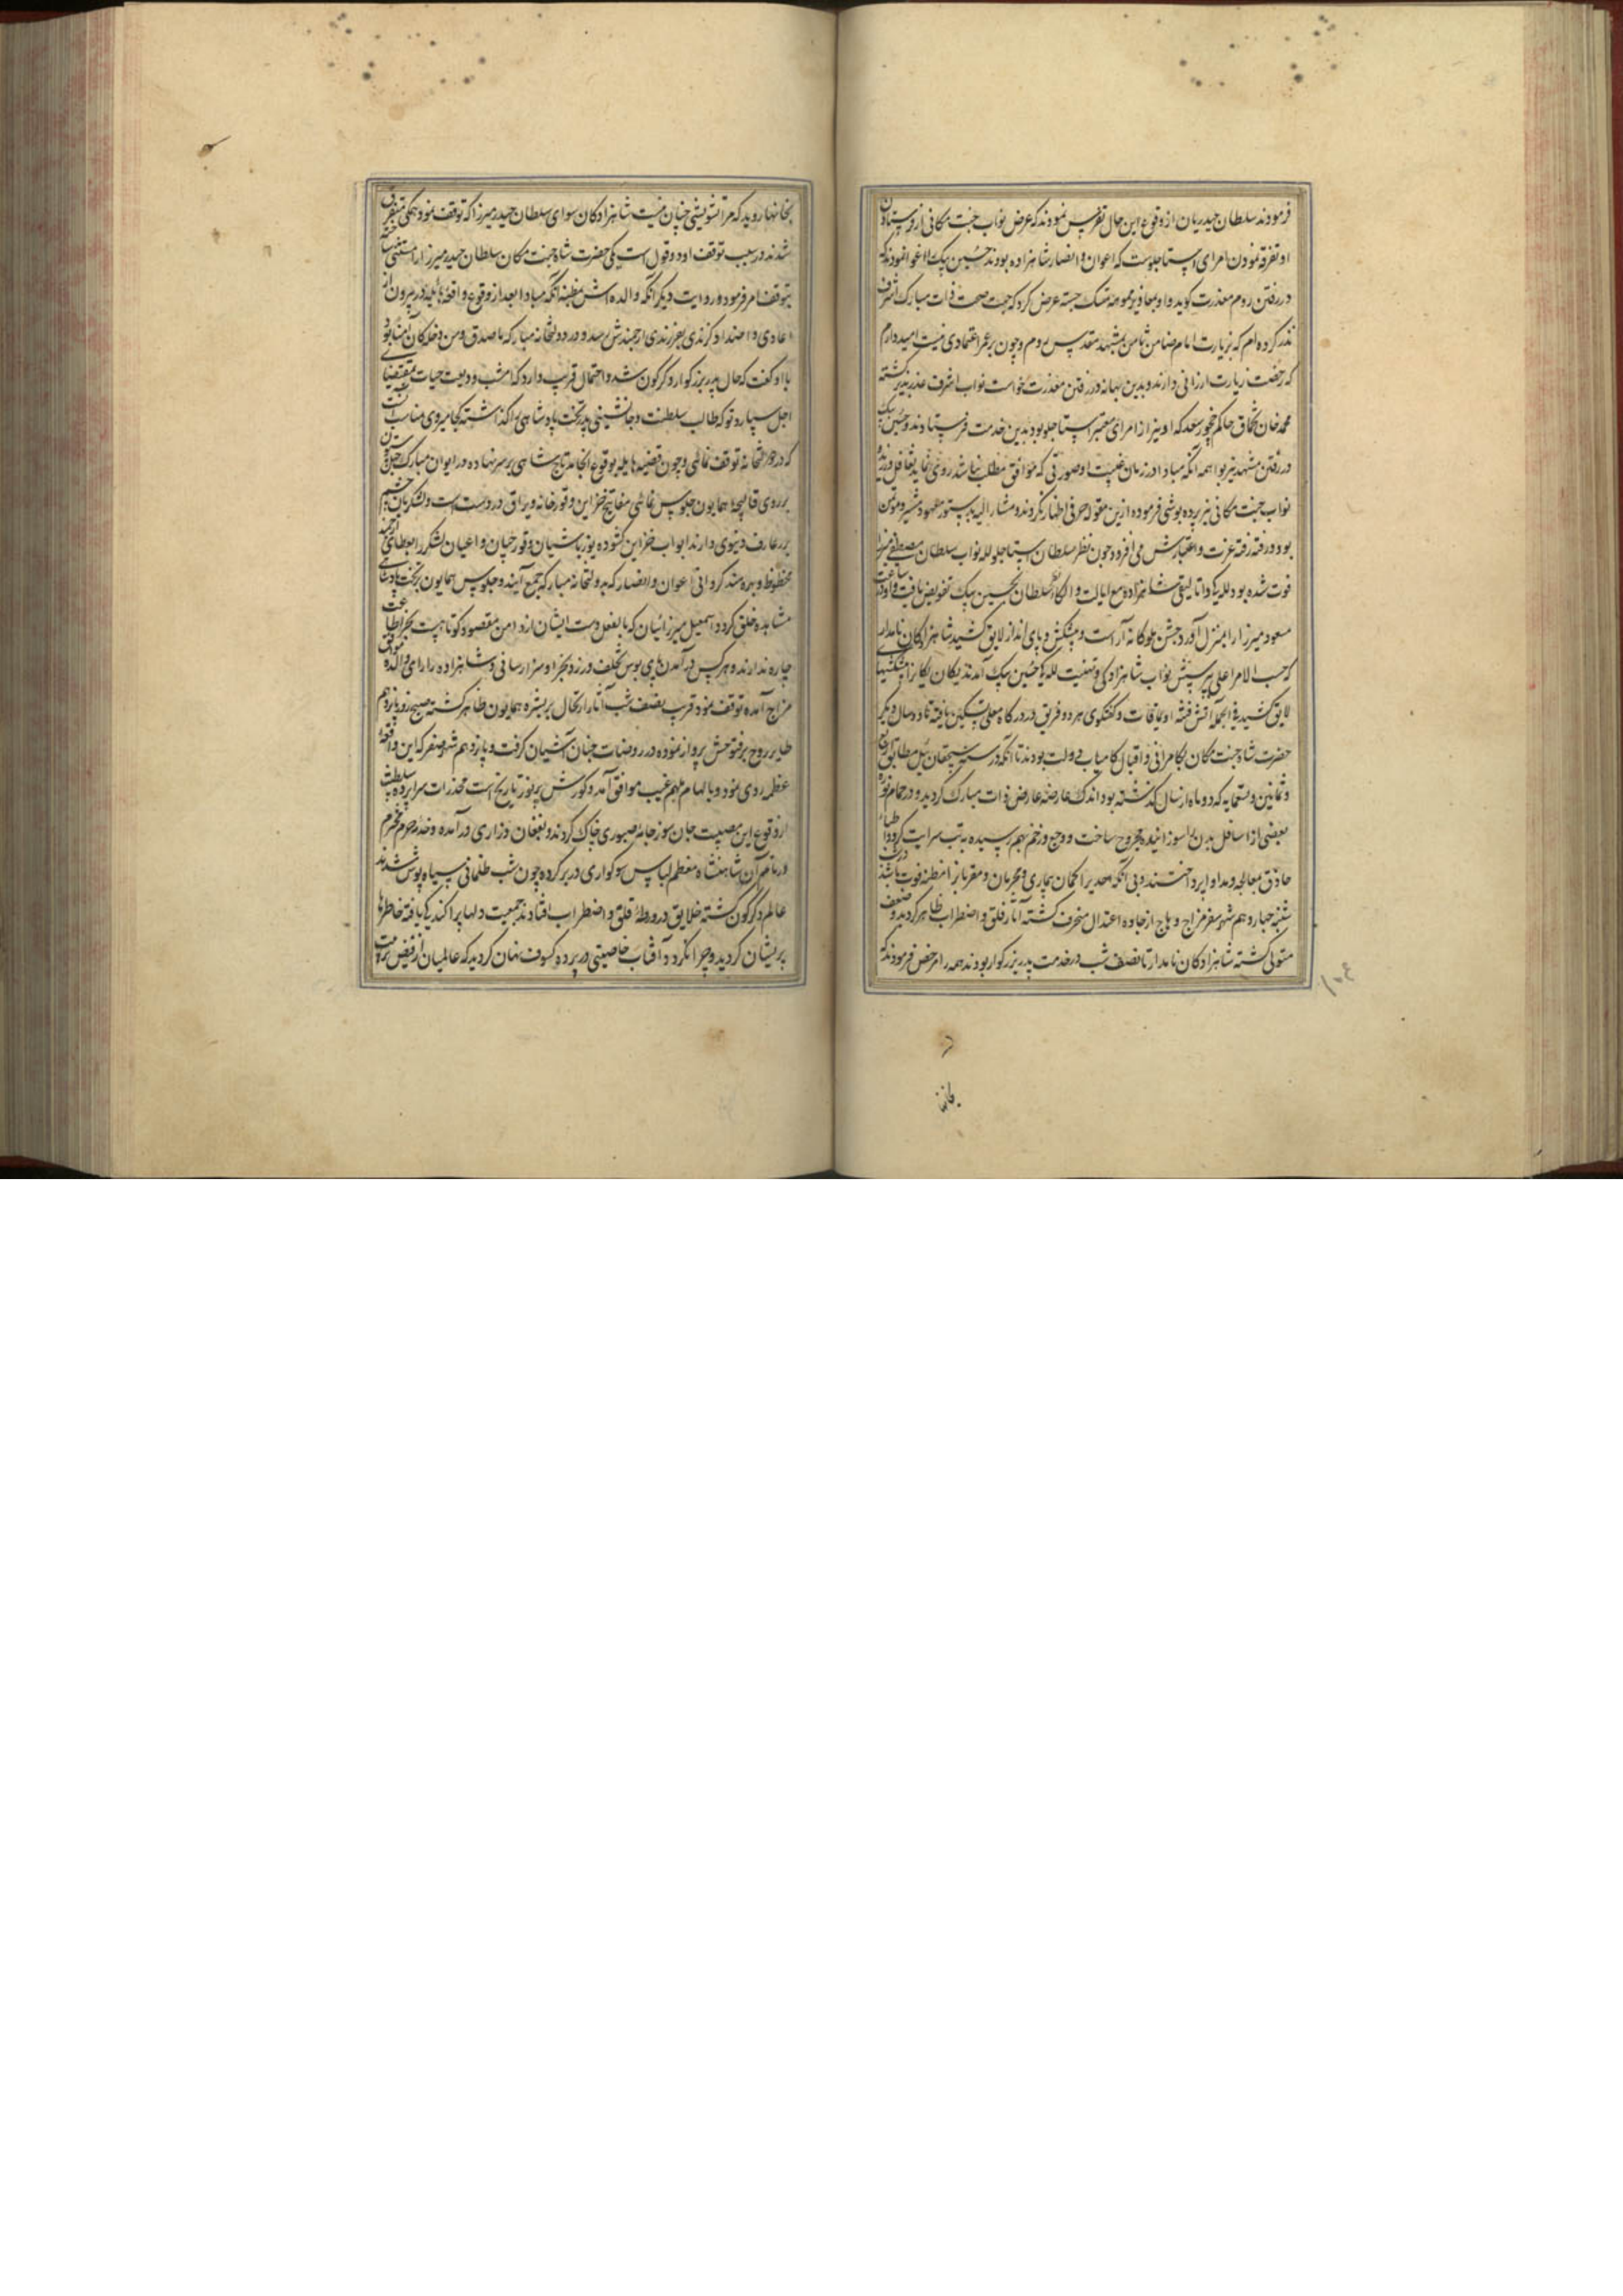 فرمودند سلطان حیدریان از وقوع این حال تفرس نمودند که عرض نواب جنت مکانی از فرستادن
او تفرقه نمودن امرای استاجلوست که اعوان و انصار شاهزاده بودند حسین بیک را اغوا نمودند که
در رفتن روم معذرت گوید و او بمعاذیر مموهه متمسک جسته عرض کرد که جهت صحت ذات مبارک اشرف
نذر کرده‌ام که بزیارت امام ضامن ثامن بمشهد مقدس روم و چون بر عمر اعتمادی نیست امیدوارم
که رخصت زیارت ارزانی دارند و بدین بهانه در رفتن معذرت خواست نواب اشرف عذرپذیر گشته
محمد خان تخماق حاکم چخور سعد که او نیز از امرای معتبر استاجلو بود بدین خدمت فرستادند و حسین بیک
در رفتن مشهد نیز بواهمه آنکه مبادا در زمان غیبت او صورتی که موافق مطلب نباشد روی نماید تغافل ورزید و
نواب جنت مکانی نیز پرده پوشی فرموده ازین مقوله حرفی اظهار نکردند و مشار الیه بدستور معهود مشیر و مؤتمن
بود و رفته رفته عزت و اعتبارش می‌افزود چون نظر سلطان استاجلو لله نواب سلطان مصطفی میرزا
فوت شده بود للگی و اتالیقی شاهزاده مع ایالت و الکاء نظر سلطان بحسین بیک تفویض یافت و او در ساعت
مسعود میرزا را بمنزل آورد جشن ملوکانه آراست و پیشکش و پای انداز لایق کشید شاهزادگان نامدار
که حسب الامر اعلی بپرسش نواب شاهزادگی و تهنیت للگی حسین بیک آمدند یکان یکان را پیشکشهای
لایق کشید فی الجمله آتش فتنه اویماقات و گفتگوی هر دو فریق در درگاه معلی تسکین یافته تا دو سال دیگر
حضرت شاه جنت مکان بکامرانی و اقبال کامیاب دولت بودند تا آنکه در سنه سیچقان ئیل مطابق اربع
و ثمانین و تسعمایه که دو ماه از سال گذشته بود اندک عارضه عارض ذات مبارک گردید و در حمام نوره
بعضی از اسافل بدن را سوزانیده مجروح ساخت و وجع و زخم بهم رسیده به تب سرایت کرد و اطباء
حاذق معالجه و مداوا پرداختند و بی آنکه احدی را گمان بیماری و محرمان و مقربانرا مظنه فوت باشد در شب
شنبه چهاردهم شهر صفر مزاج وهاج از جاده اعتدال منحرف گشته آثار قلق و اضطراب ظاهر گردید و ضعف
مستولی گشته شاهزادگان نامدار تا نصف شب در خدمت پدر بزرگوار بودند همه را مرخص فرمودند که
بخانها
بخانها روید که مرا تشویشی چنان نیست شاهزادگان سوای سلطان حیدر میرزا که توقف نمود همگی متفرق
شدند در سبب توقف او دو قول است یکی حضرت شاه جنت مکان سلطان حیدر میرزا را مستثنی ساخته
بتوقف امر فرمود و روایت دیگر آنکه والده‌اش بمظنه آنکه مبادا بعد از وقوع واقعه هایله در بیرون از
اعادی و اضداد گزندی بفرزندی ارجمندش رسد و در دولتخانه مبارکه
با او گفت که حال پدر بزرگوار دگرگون شده و احتمال قریب دارد که امشب ودیعت حیات بمقتضای
اجل سپارد و تو که طالب سلطنت و جانشینی پدر تخت پادشاهی را گذاشته کجا میروی مناسب آنست
که در دولتخانه توقف نمائی و چون قضیه هایله بوقوع انجامد تاج شاهی بر سر نهاده در ایوان مبارک چهل ستون
بر روی قالیچه همایون جلوس نمائی مفاتیح خزاین و قورخانه و یراق در دست است و لشکریان چشم
بر زخارف دنیوی دارند ابواب خزاین گشوده یوزباشیان و قورچیان و اعیان لشکر را بعطایای ارجمند
محظوظ و بهره‌مند گردانی اعوان و انصار که بدولتخانه مبارکه جمع آیند و جلوس همایون بر تخت پادشاهی
مشاهده خلق گردد اسمعیل میرزائیان که بالفعل دست ایشان از دامن مقصود کوتاهست بجز اطاعت
چاره ندارند و هر کس در آمدن پای بوس تخلف ورزد بجزا و سزا رسانی و شاهزاده را رای والده موافق
مزاج آمده توقف نمود قریب بنصف شب آثار ارتحال بر بشره همایون ظاهر گشته صبح روز پانزدهم
طایر روح پرفتوحش پرواز نموده در روضات جنان آشیان گرفت و پانزدهم شهر صفر که این واقعه
عظمه روی نمود و بالهام ملهم غیب موافق آمد و گورش پرنور تاریخ است مخدرات سراپرده سلطنت
از وقوع این مصیبت جان سوز جامه صبوری چاک کردند و بفغان و زاری درآمده و خدمه حرم محترم
در ماتم آن شاهنشاه معظم لباس سوگواری در بر کرده چون شب ظلمانی سیاه پوش شدند
عالم دگرگون گشته خلایق در ورطه قلق و اضطراب افتادند جمعیت دلها پراکندگی یافته خاطرها
پریشان گردید و چرا نگردد آفتاب خاصیتی در پرده کسوف نهان گردید که عالمیان از فیض تربیت